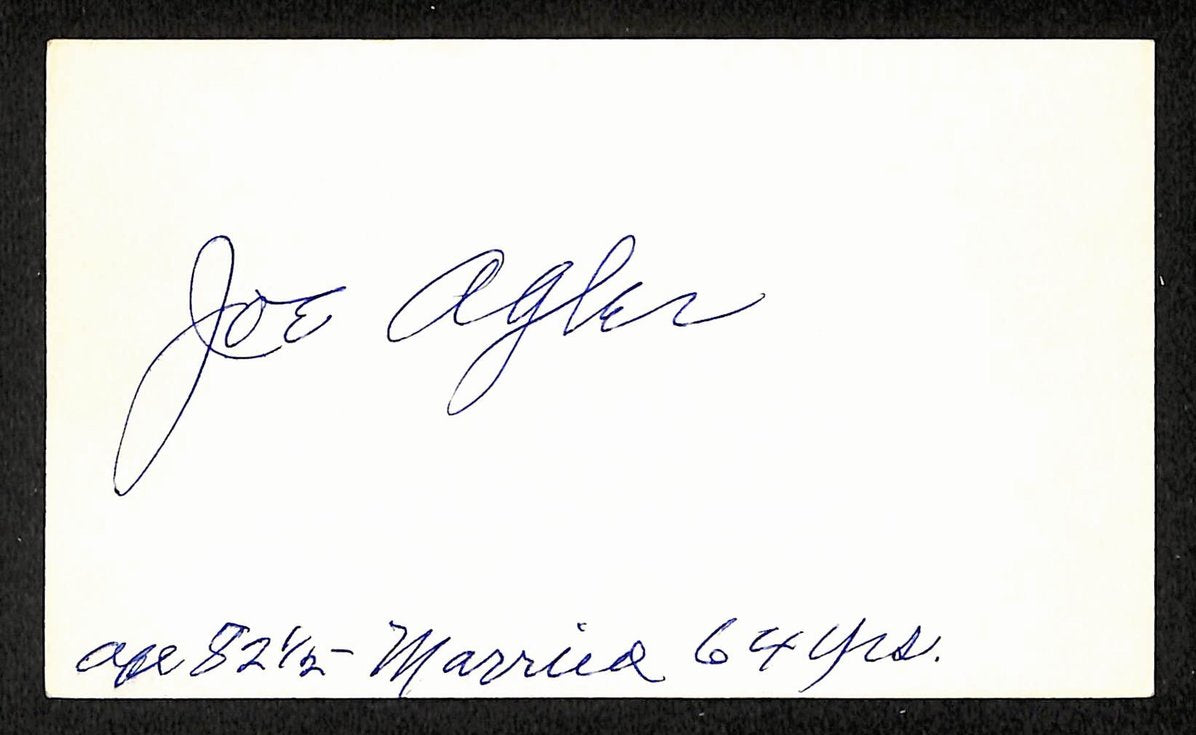 Joe Agler
age 82 1/2 - Married 64 yrs.